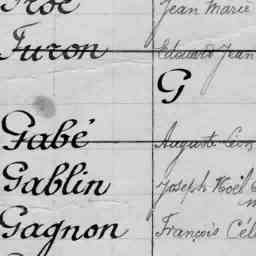 Jean Marie
Furon Edouard Jean
G
Gabé Auguste
Gablin Joseph Noël
Gagnon François